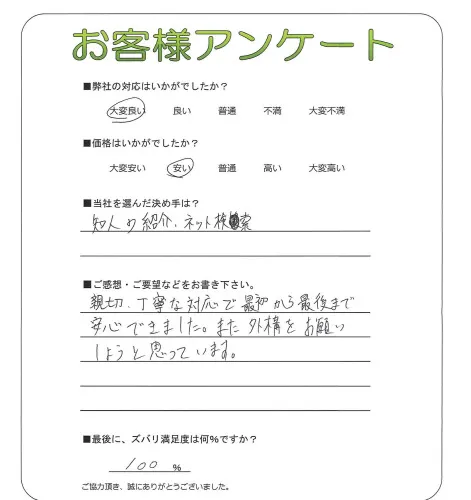 お客様アンケート
■弊社の対応はいかがでしたか？
大変良い 良い 普通 不満 大変不満
■価格はいかがでしたか？
大変安い 安い 普通 高い 大変高い
■当社を選んだ決め手は？
知人の紹介、ネット検索
■ご感想・ご要望などをお書き下さい。
親切、丁寧な対応で最初から最後まで
安心できました。また外構をお願い
しようと思っています。
■最後に、ズバリ満足度は何%ですか？
100 %
ご協力頂き、誠にありがとうございました。